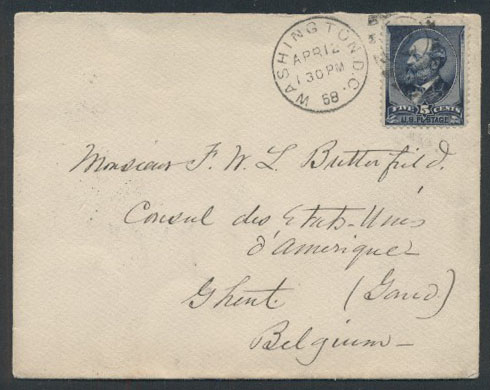 WASHINGTON D.C.
APR 12
1 30 PM
88
FIVE 5 CENTS
U.S. POSTAGE
Monsieur F. W. L. Butterfield.
Consul des Etats-Unis
d'Amerique
Ghent. (Gand.)
Belgium —